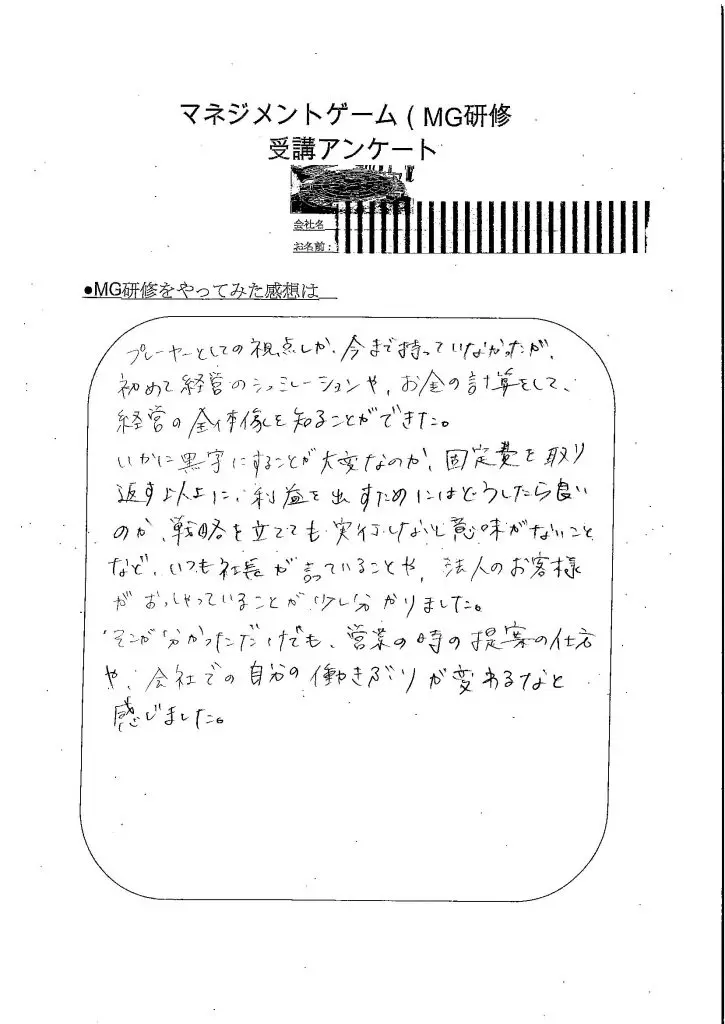 マネジメントゲーム（MG研修
受講アンケート
会社名
お名前：
●MG研修をやってみた感想は
プレーヤーとしての視点しか、今まで持っていなかったが、
初めて経営のシュミレーションや、お金の計算をして、
経営の全体像を知ることができた。
いかに黒字にすることが大変なのか、固定費を取り
返す以上に、利益を出すためにはどうしたら良い
のか、戦略を立てても実行しないと意味がないこと
など、いつも社長が言っていることや、法人のお客様
がおっしゃっていることが少し分かりました。
そこが分かっただけでも、営業の時の提案の仕方
や、会社での自分の働きぶりが変わるなと
感じました。